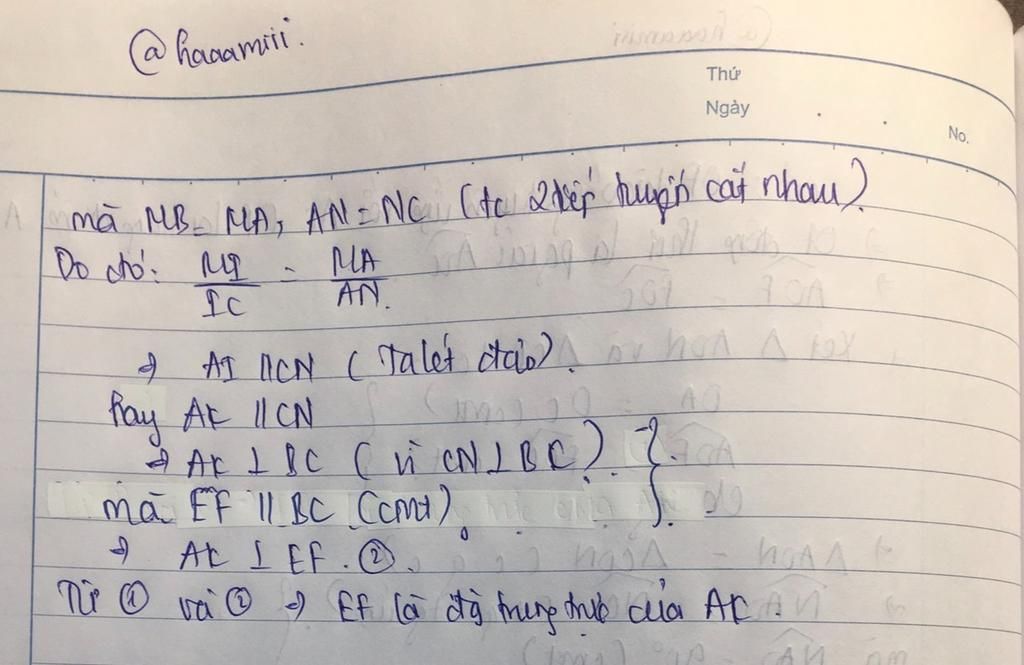 @haaamiii.
Thứ
Ngày
No.
mà MB = MA, AN = NC (tc 2 tiếp tuyến cắt nhau).
Do đó: MI/IC = MA/AN.
⇒ AI // CN (Talét đảo).
hay AK // CN
⇒ AK ⊥ BC (vì CN ⊥ BC). }
mà EF // BC (cmt).
⇒ AK ⊥ EF. ②.
Từ ① và ② ⇒ EF là đg trung trực của AK.